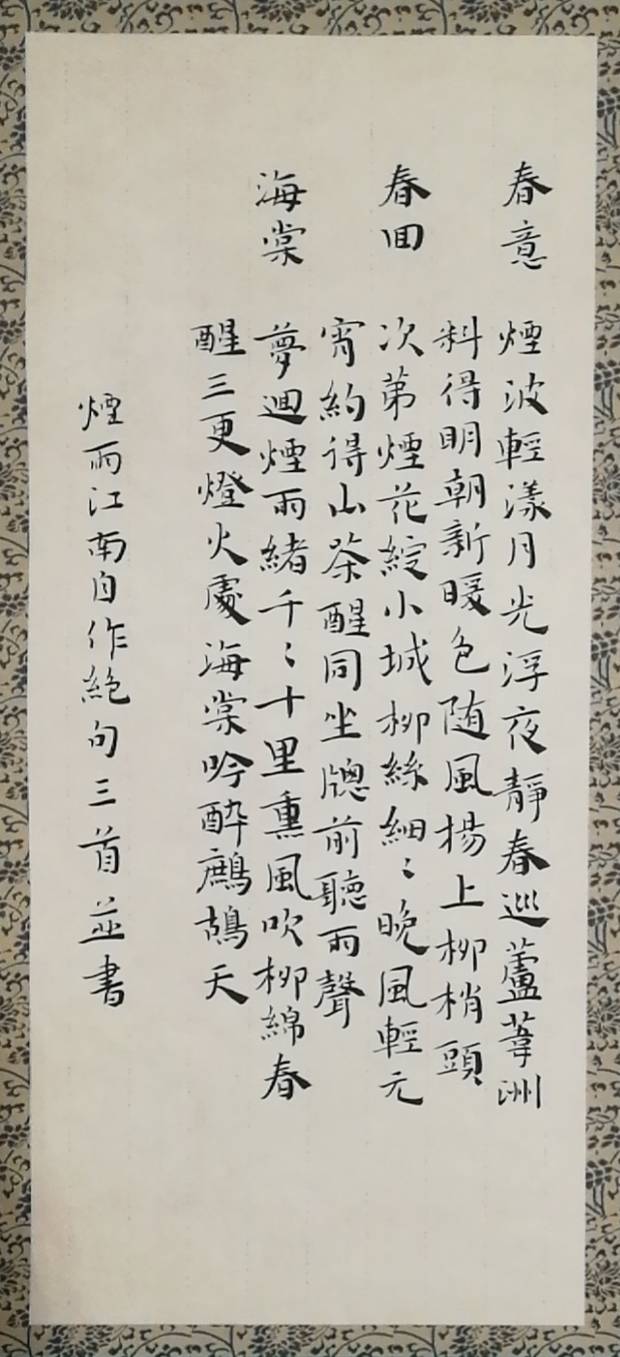 春意 煙波輕漾月光浮夜靜春巡蘆葦洲
料得明朝新暖色随風揚上柳梢頭
春回 次第煙花綻小城柳絲細〻晚風輕元
宵約得山茶醒同坐牕前聽雨聲
海棠 夢迴煙雨緒千〻十里熏風吹柳綿春
醒三更燈火處海棠吟醉鷓鴣天
煙雨江南自作絕句三首並書